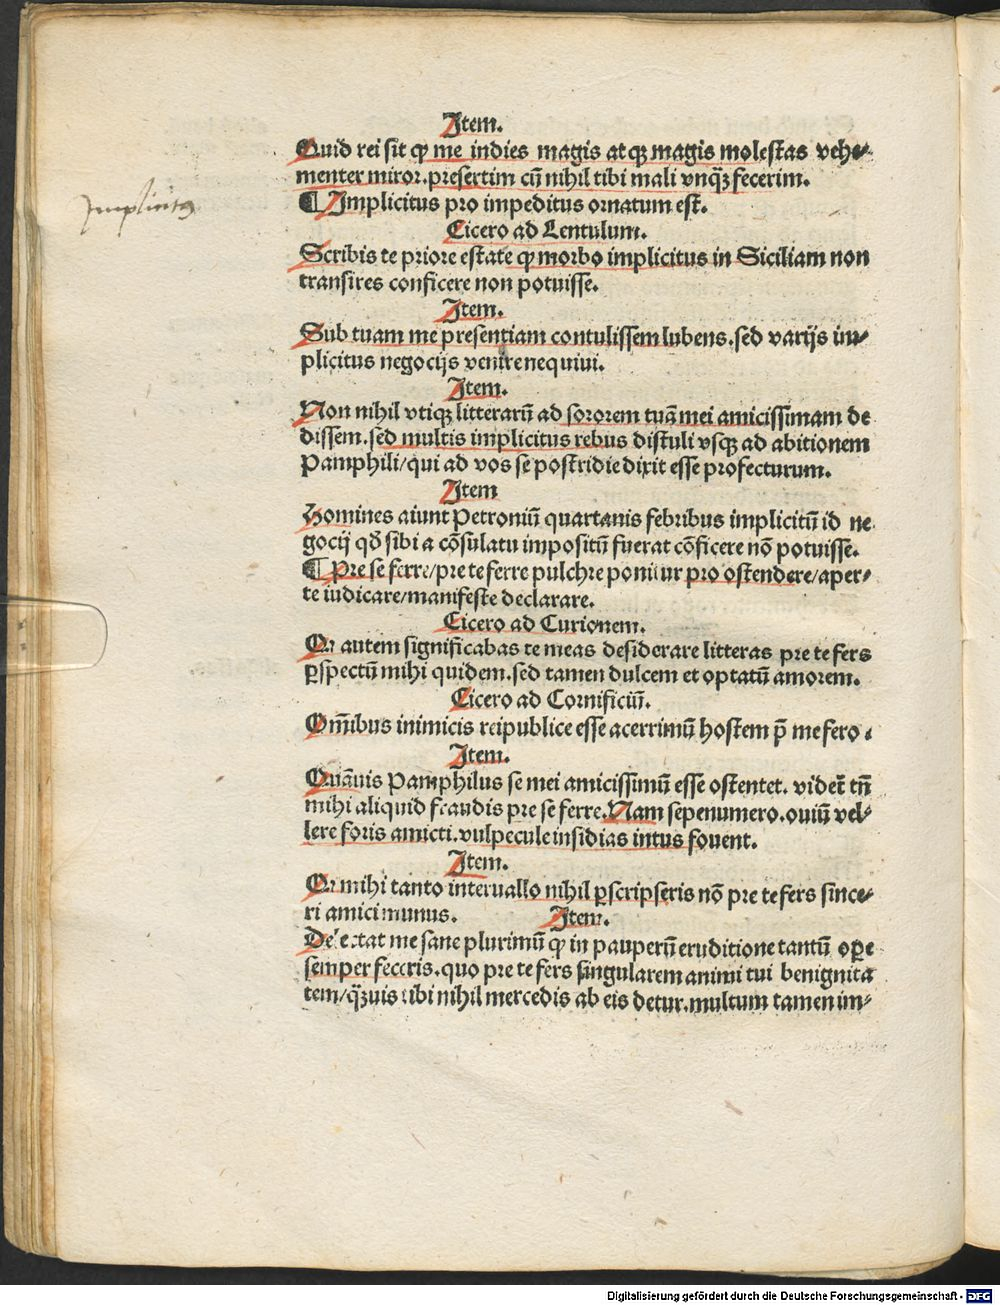 Item.
Quid rei sit ꝙ me indies magis atqꝫ magis molestas vehe⸗
menter miror. presertim cū nihil tibi mali vnq̃ꝫ fecerim.
¶ Implicitus pro impeditus ornatum est.
Implicitꝰ
Cicero ad Lentulum.
Scribis te priore estate ꝙ morbo implicitus in Siciliam non
transires conficere non potuisse.
Item.
Sub tuam me presentiam contulissem lubens. sed varijs im⸗
plicitus negocijs venire nequiui.
Item.
Non nihil vtiqꝫ litterarū ad sororem tuā mei amicissimam de
dissem. sed multis implicitus rebus distuli vsqꝫ ad abitionem
Pamphili/ qui ad vos se postridie dixit esse profecturum.
Item
Homines aiunt Petroniū quartanis febribus implicitū id ne
gocij qđ sibi a cōsulatu impositū fuerat cōficere nō potuisse.
¶ Pre se ferre/ pre te ferre pulchre ponitur pro ostendere/ aper⸗
te iudicare/ manifeste declarare.
Cicero ad Curionem.
Qn autem significabas te meas desiderare litteras pre te fers
ꝑspectū mihi quidem. sed tamen dulcem et optatū amorem.
Cicero ad Cornificiū.
Om̄ibus inimicis reipublice esse acerrimū hostem p̄ me fero.
Item.
Quāuis Pamphilus se mei amicissimū esse ostentet. videt̄ tn̄
mihi aliquid fraudis pre se ferre. Nam sepenumero. ouiū vel⸗
lere foris amicti. vulpecule insidias intus fouent.
Item.
Qn mihi tanto interuallo nihil ꝑscripseris nō pre te fers since⸗
ri amici munus. Item.
Delectat me sane plurimū ꝙ in pauperū eruditione tantū oꝑe
semper feceris. quo pre te fers singularem animi tui benignita
tem/ q̃ꝫuis tibi nihil mercedis ab eis detur. multum tamen im⸗
Digitalisierung gefördert durch die Deutsche Forschungsgemeinschaft - DFG